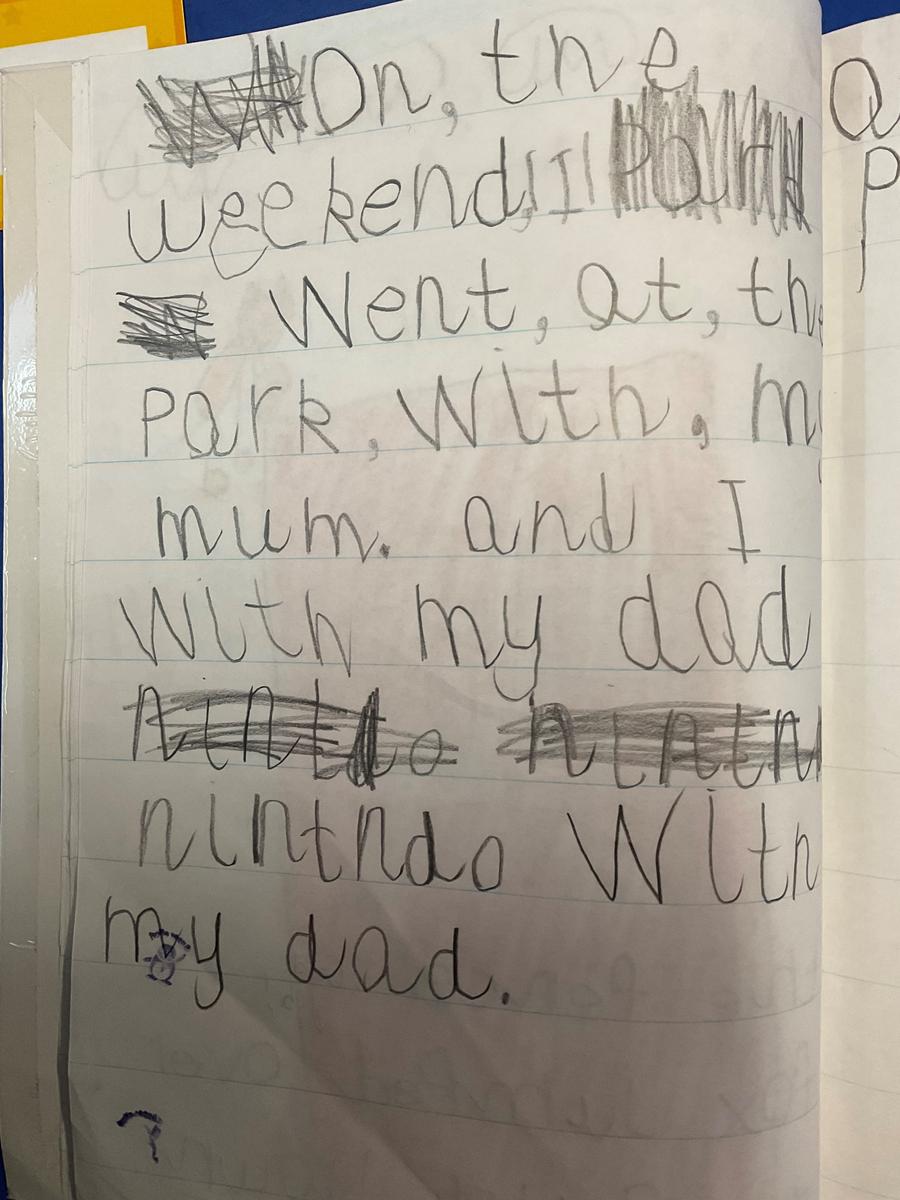 On, the
weekend, I
Went, at, the
Park, With, my
mum. and I
With my dad
nintndo With
my dad.
?